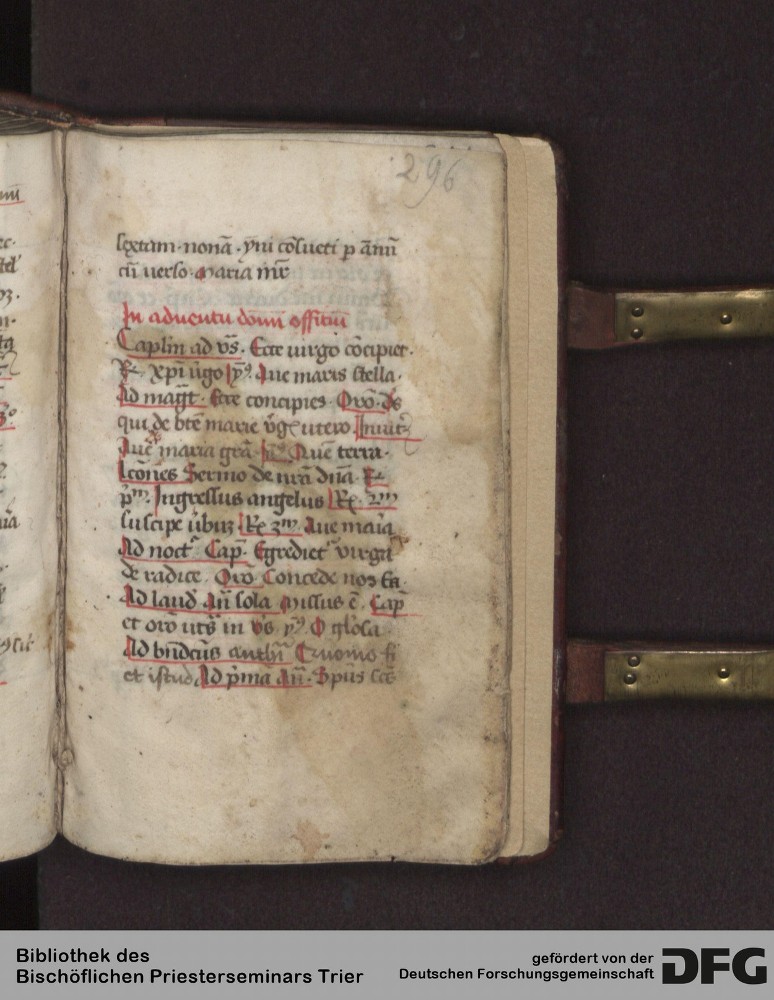 296
sextam · nonā · ỹni cōsueti p ānū
cū verso · maria mr̄
In aduentu domī offitiū
Caplm ad vs̄ · Ecce uirgo cōcipiet ·
R̄ · xpi ūgo ỹꝰ · Aue maris stella ·
Ad mag̃t · Ecce concipies · Oro · ds̄
qui de bte marie ūg utero · Inuit
Aue maria grã · Quē terra ·
lcōnes Sermo de nr̄a dn̄a · R̄
pm · Ingressus angelus R̄ · 2m
suscipe ūbuz R̄ 3m · Aue maria
Ad noct · Cap · Egrediet uirga
de radice · Oro · Concede nos fa
Ad laud an̄ sola missus ē · Cap
et orō uts̄ in vs̄ yꝰ O glosa
Ad bn̄dcūs anthī
et istud Ad prima An̄ · Spus scs̄
Bibliothek des
Bischöflichen Priesterseminars Trier
gefördert von der
Deutschen Forschungsgemeinschaft
DFG